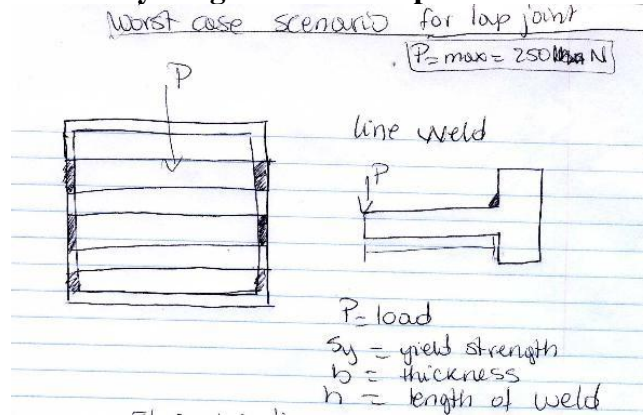 worst case scenario for lap joint
P=max= 250 N
P
line weld
P
P= load
Sy = yield strength
b = thickness
h = length of weld